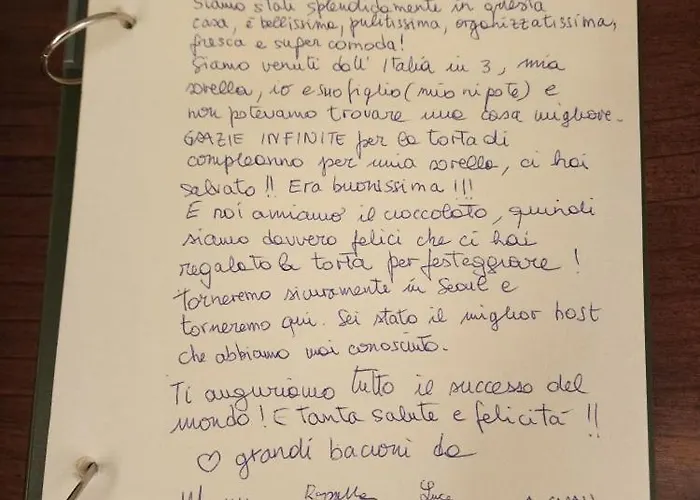 Siamo stati splendidamente in questa
casa, è bellissima, pulitissima, organizzatissima,
fresca e super comoda!
Siamo venuti dall'Italia in 3, mia
sorella, io e suo figlio (mio nipote) e
non potevamo trovare una casa migliore.
GRAZIE INFINITE per la torta di
compleanno per mia sorella, ci hai
salvato!! Era buonissima!!!
E noi amiamo il cioccolato, quindi
siamo davvero felici che ci hai
regalato la torta per festeggiare!
Torneremo sicuramente in Seoul e
torneremo qui. Sei stato il miglior host
che abbiamo mai conosciuto.
Ti auguriamo tutto il successo del
mondo! E tanta salute e felicità!!
♡ grandi bacioni da
Luca